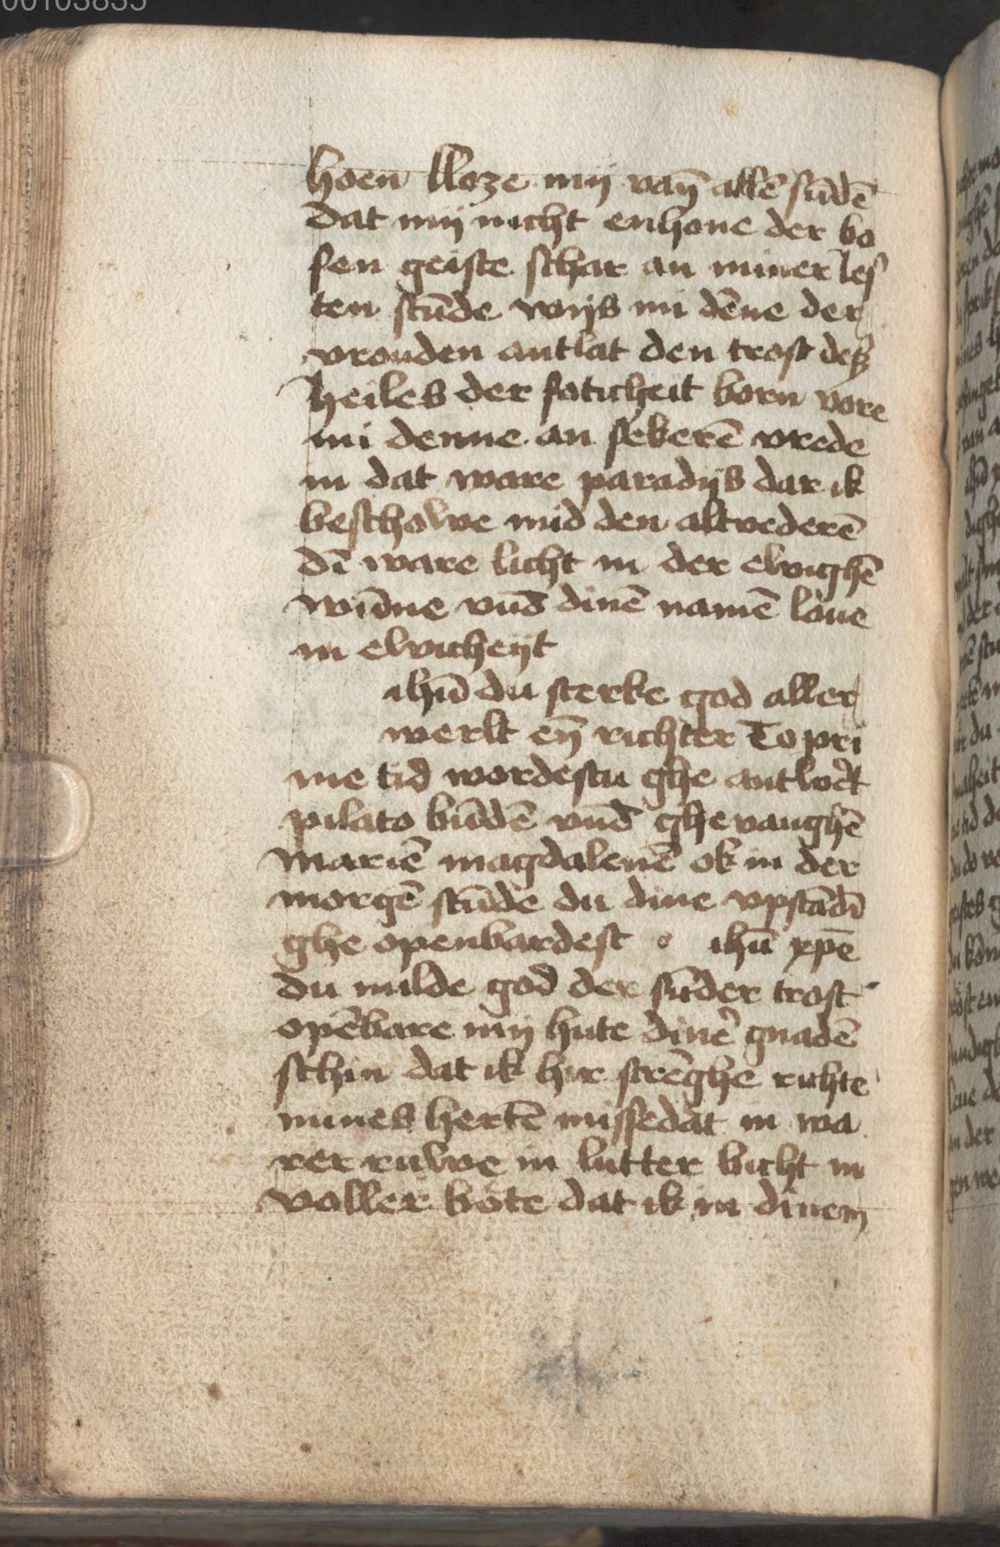 00103835
hoen lloze mij vaȳ allē sūdē
dat mij nicht enhone der bo
sen geiste schar an miner les
ten stūde wijs mi dēne der
vrouden antlat den trost des
heiles der soticheit born vore
mi denne an sekerē vrede
in dat ware paradijs dar ik
beschowe mid den altvederē
dī ware licht in der ewighē
wūne vnd̄ dinē namē loue
in ewicheijt
ihū du sterke god aller
werlt eȳ richter To pri
me tid wordestu ghe antwert
pilato būdē vnd̄ ghevanghē
mariē magdalenē ok in der
morgē stūde du dine vpstādī
ghe openbardest ihū xpē
du milde god der sūder trost
opēbare mij hute diner gnadē
schin dat ik hir strēghe richte
mines hertē missedat in wa
rer ruwe in lutter bicht in
voller bote dat ik in dinem